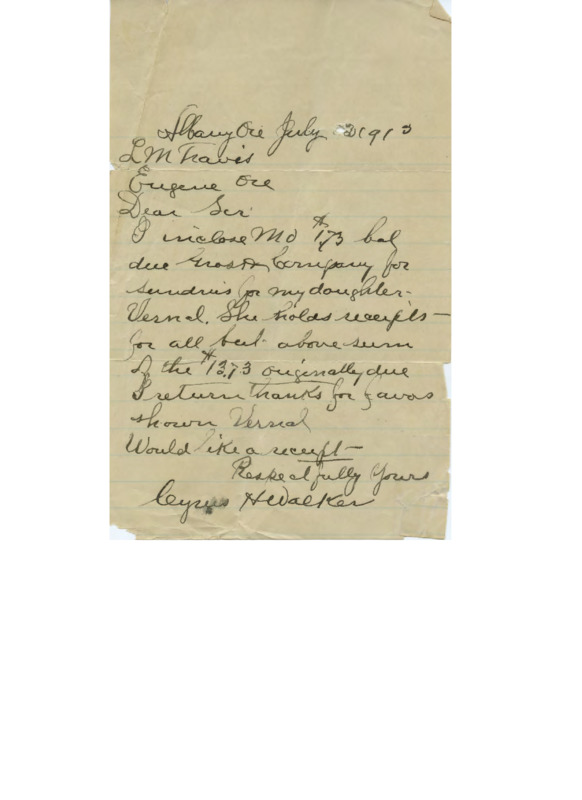 Albany Ore July 1913
L M Travis
Eugene Ore
Dear Sir
I inclose M O $1.73 bal
due Company for
sundris for my daughter
Vernal. She holds receipts
for all but above sum
of the $13.73 originally due
I return thanks for favors
shown Vernal
Would like a receipt
Respectfully Yours
Cyrus H Walker